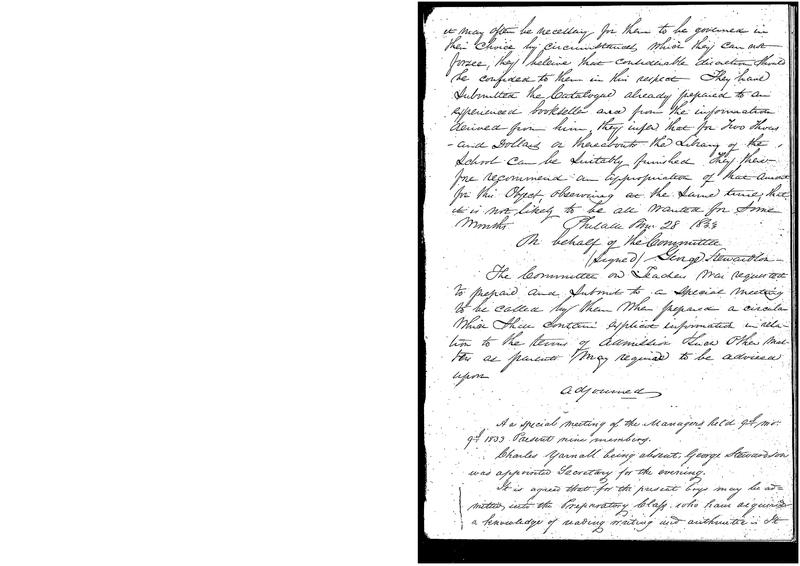 it may often be necessary for them to be governed in
their choice by circumstances, which they can not
forsee, they beleive that considerable discretion should
be confided to them in this respect They have
Submitted the Catalogue already prepared to an
experienced bookseller and from the information
derived from him, they infer that for Two Thous
-and Dollars or thereabouts the Library of the
School can be Suitably furnished They there-
fore recommend an appropriation of that amount
for this Object, observing at the Same time, that
it is not likely to be all wanted for Some
Months Philada 28 1833
On behalf of the Committee
(Signed) George Stewardson
The Committee on Teachers was requested
to prepare and Submit to a Special meeting
to be called by them when prepared a circular
which Shall contain explicit information in rela-
tion to the terms of admission & Such Other mat-
ters as parents may require to be advised
upon
adjourned
At a special meeting of the Managers held 9th mo.
9th 1833 Present nine members.
Charles Yarnall being absent, George Stewardson
was appointed Secretary for the evening.
It is agreed that for the present boys may be ad-
mitted into the Preparatory Class, who have acquired
a knowledge of reading writing and arithmetic. It